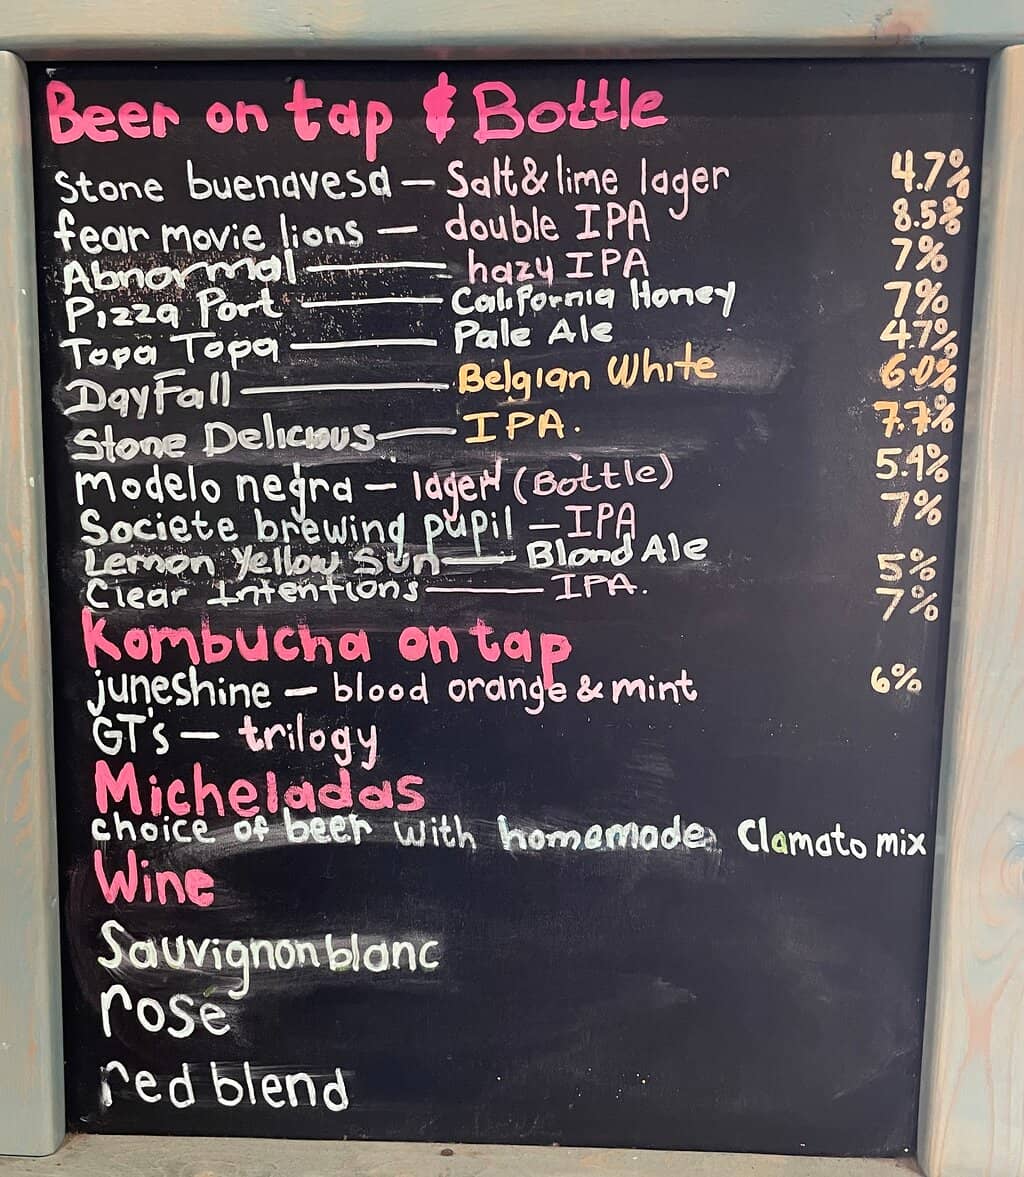 Beer on tap & Bottle
Stone buenavesa — Salt & lime lager 4.7%
fear movie lions — double IPA 8.5%
Abnormal — hazy IPA 7%
Pizza Port — California Honey 7%
Topa Topa — Pale Ale 4.7%
DayFall — Belgian White 6.0%
Stone Delicious — IPA. 7.7%
modelo negra — lager (Bottle) 5.4%
Societe brewing pupil — IPA 7%
Lemon Yellow Sun — Blond Ale 5%
Clear Intentions — IPA. 7%
Kombucha on tap
juneshine — blood orange & mint 6%
GT's — trilogy
Micheladas
choice of beer with homemade Clamato mix
Wine
Sauvignon blanc
rosé
red blend